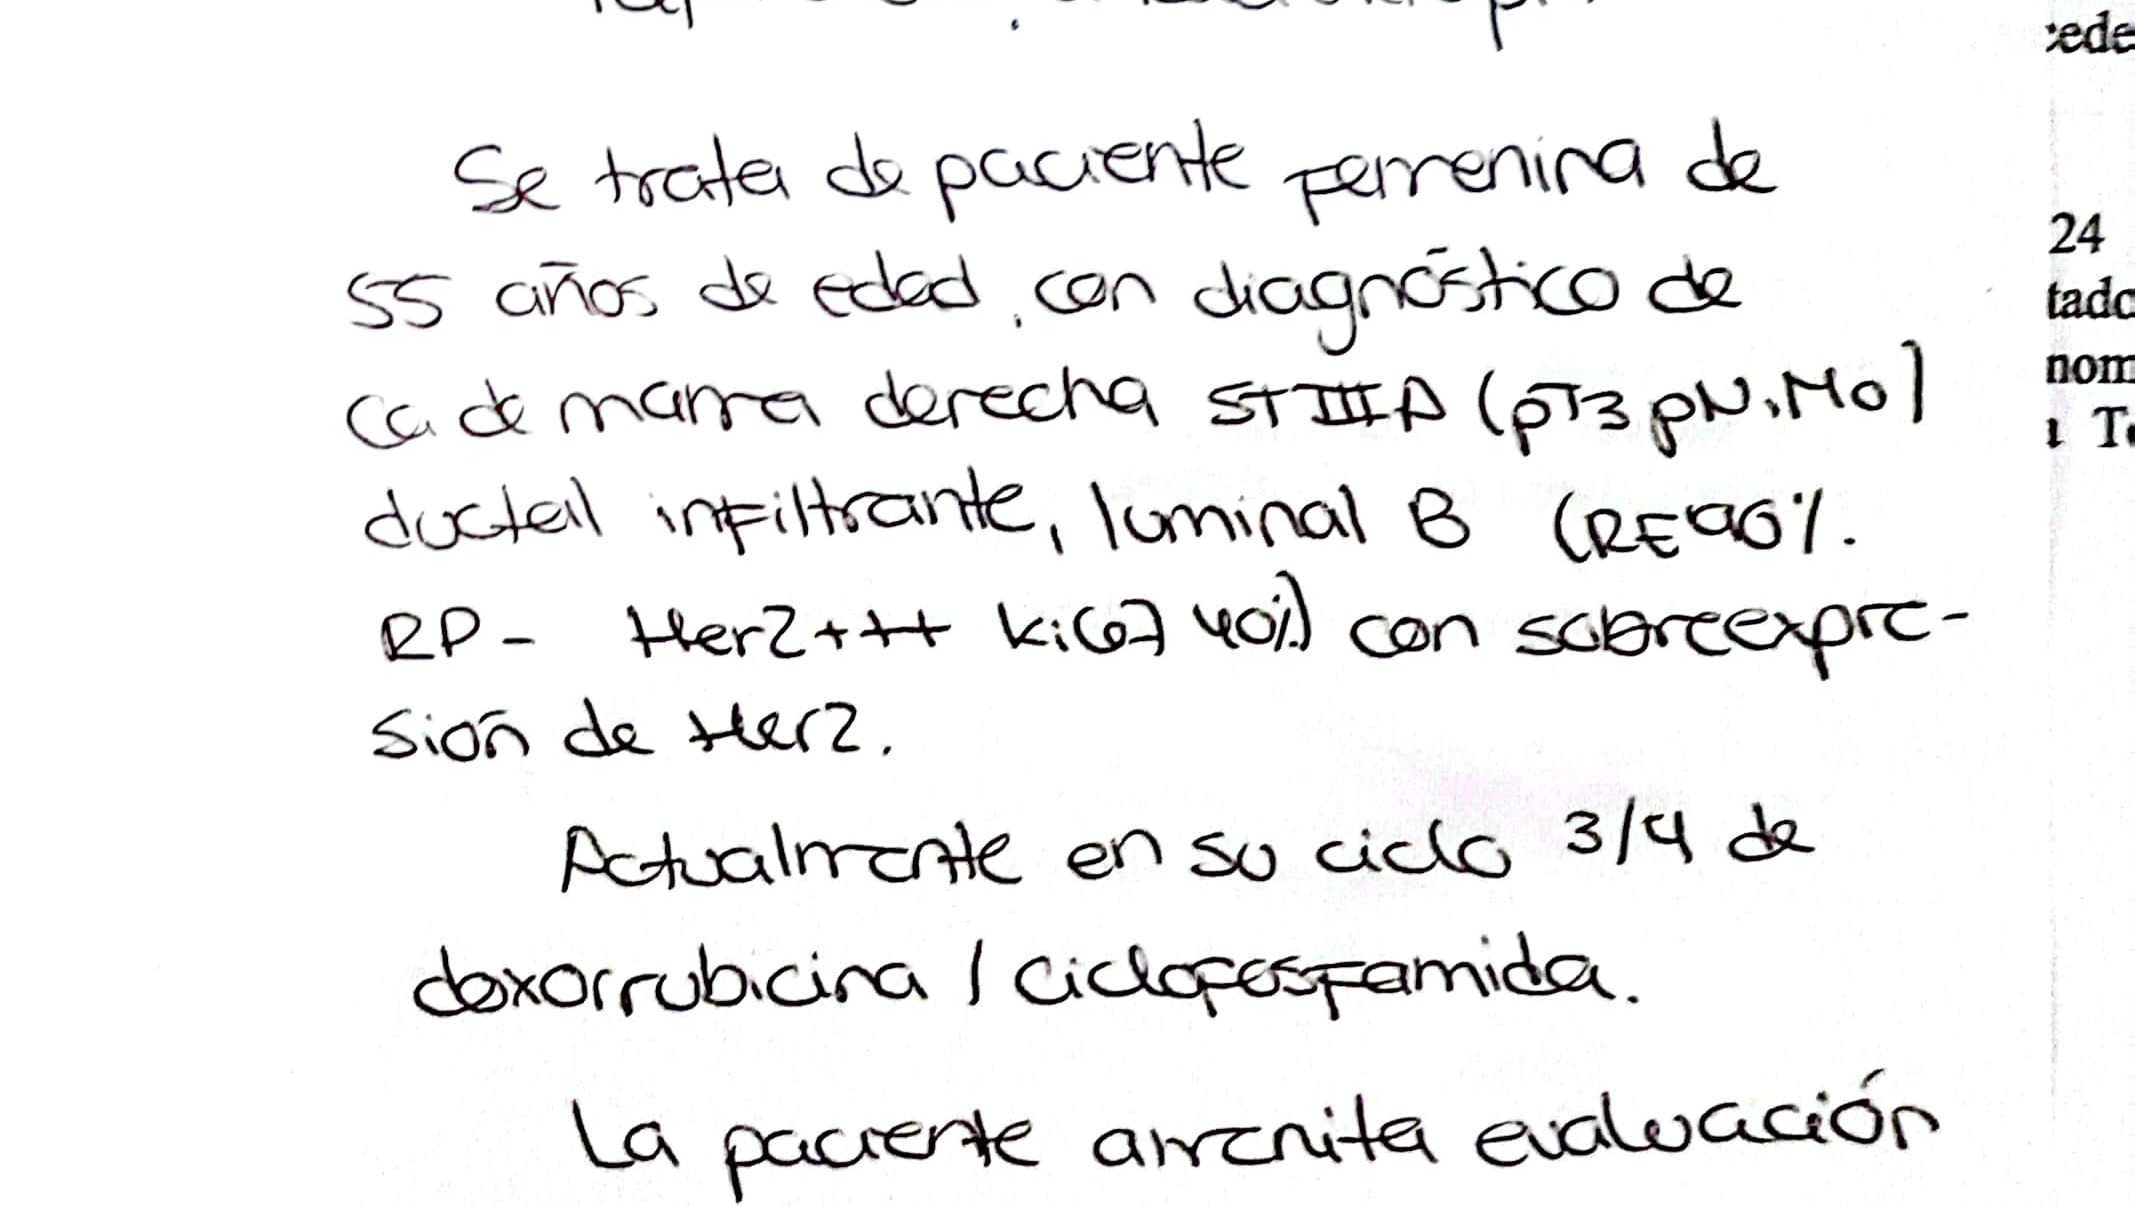 Se trata de paciente femenina de
55 años de edad, con diagnóstico de
Ca de mama derecha ST IIIA (pT3 pN1 M0)
ductal infiltrante, luminal B (RE 90%.
RP - Her2+++ ki67 40%) con sobreexpre-
sión de Her2.
Actualmente en su ciclo 3/4 de
doxorrubicina / ciclofosfamida.
La paciente amerita evaluación
24